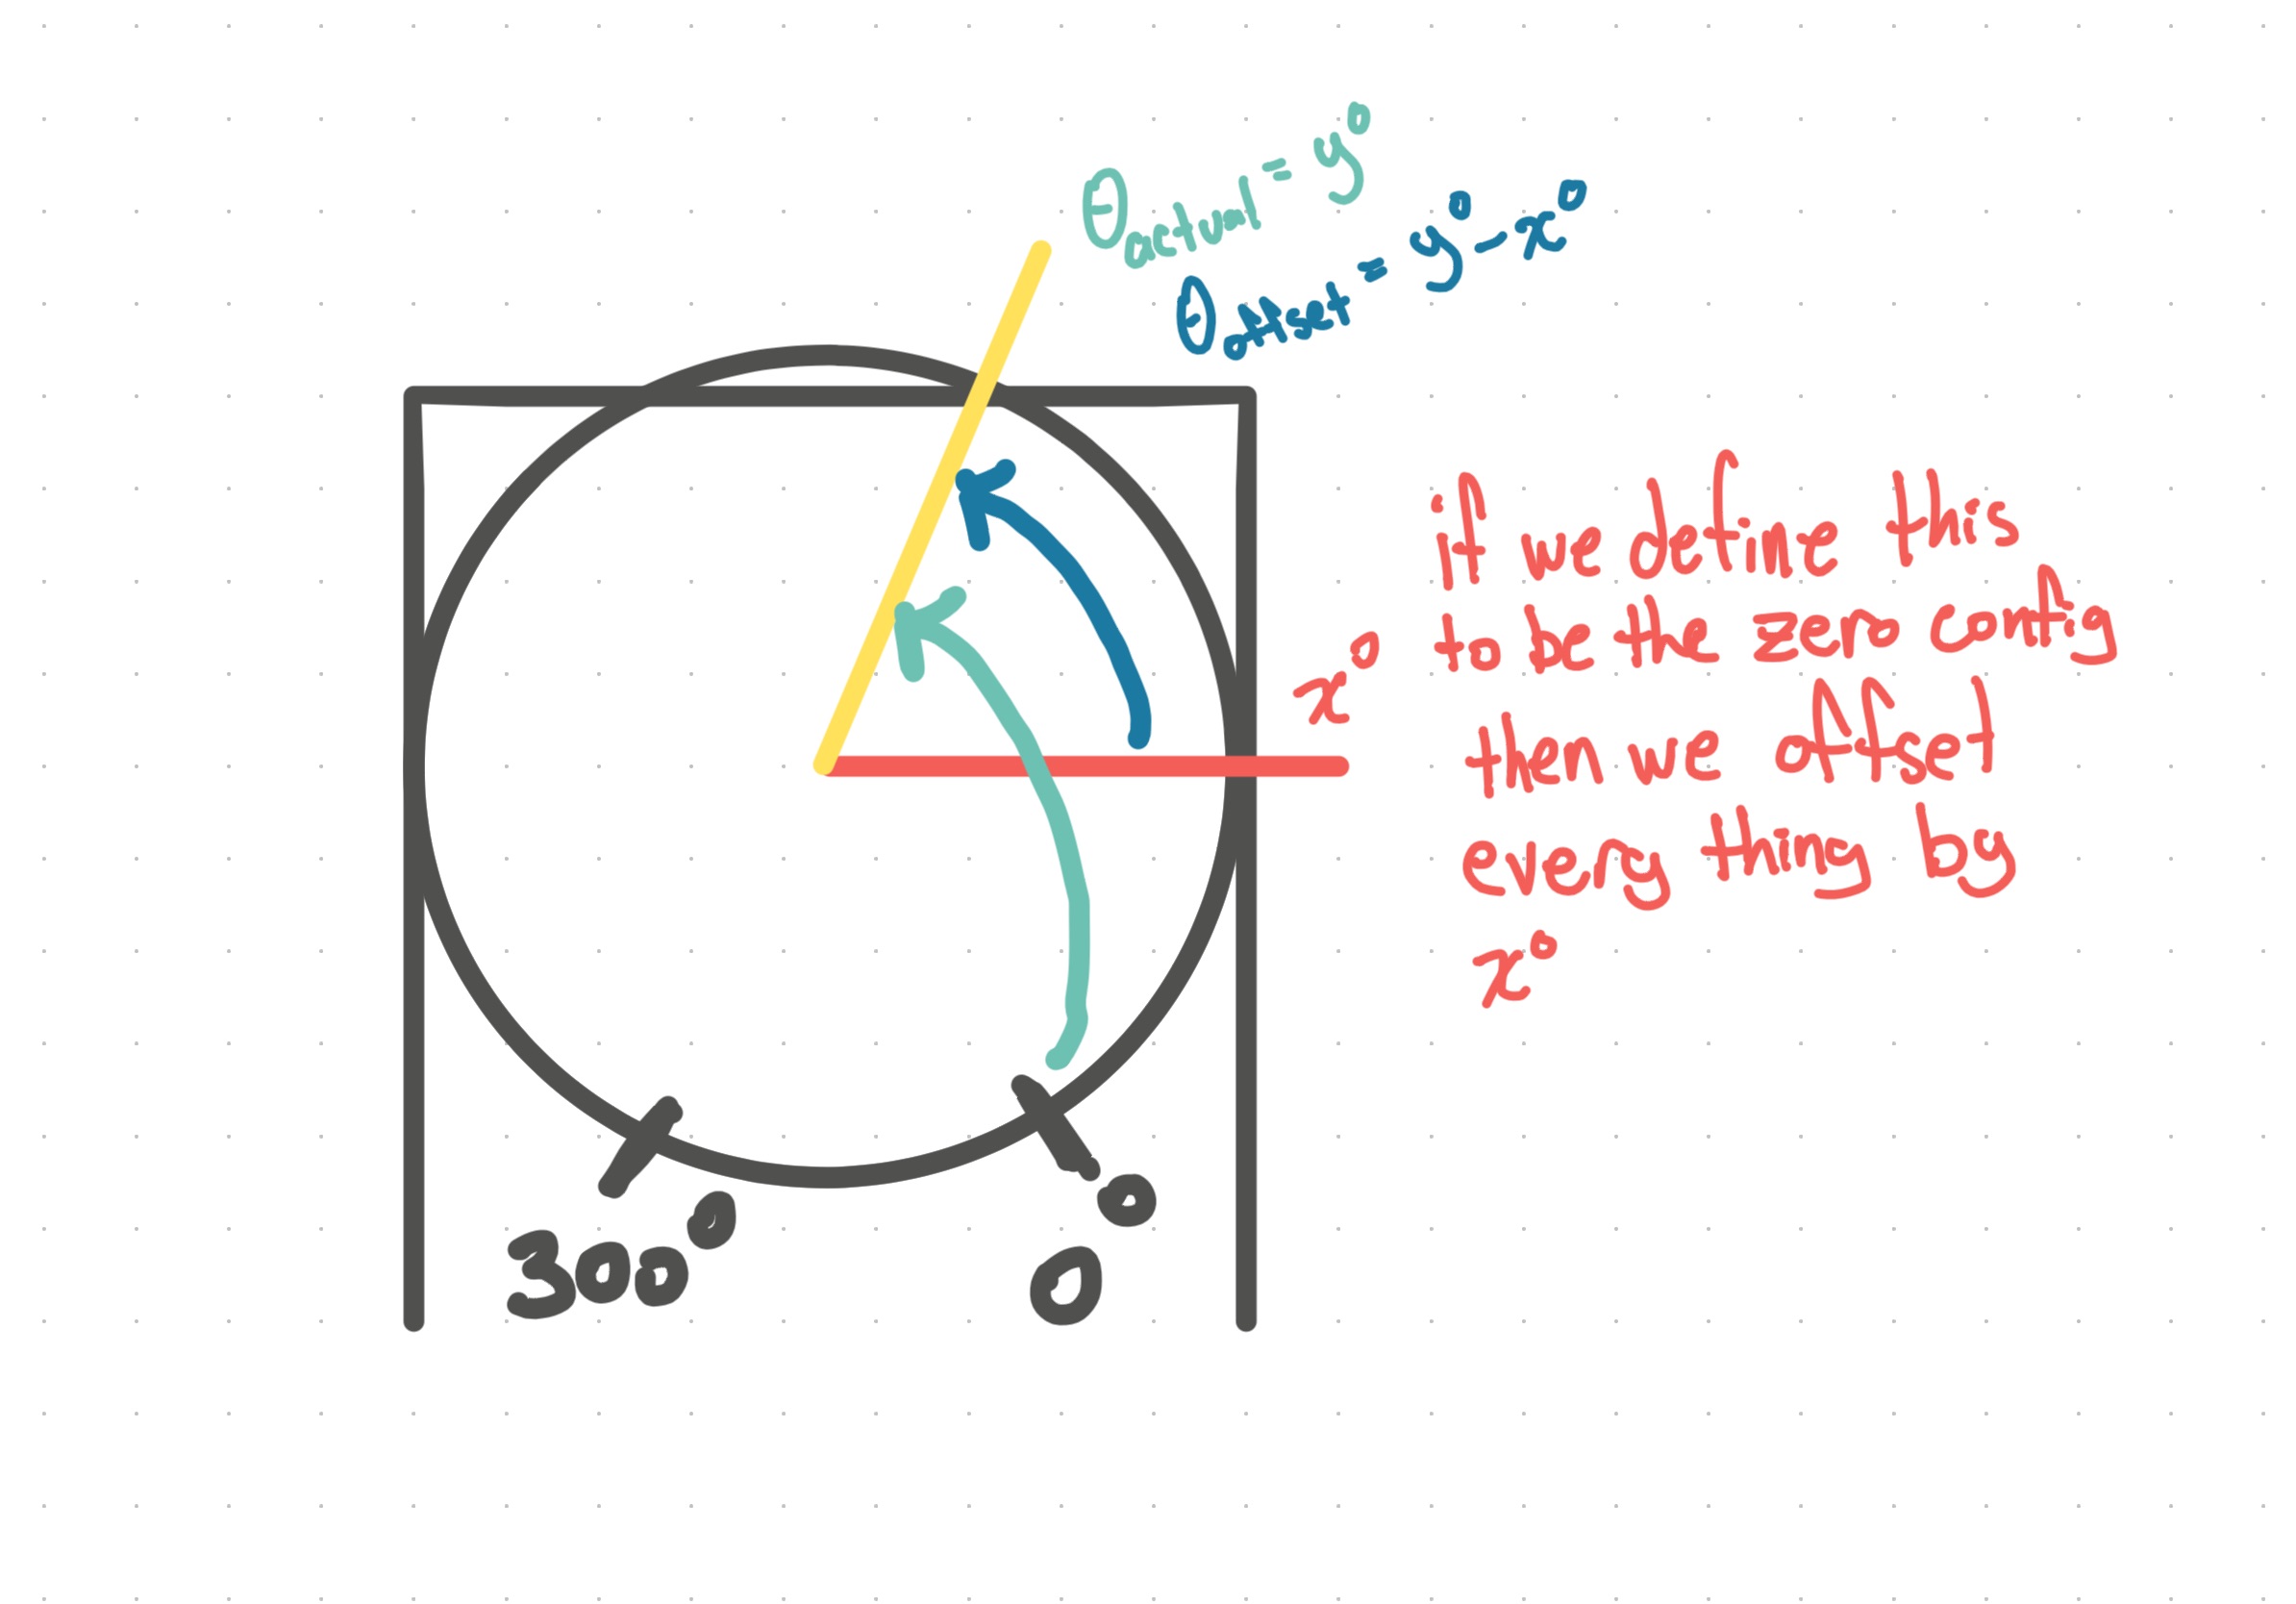 θactual = y°
θoffset = y° - x°
if we define this
to be the zero config
x°
then we offset
every thing by
x°
300°
0°